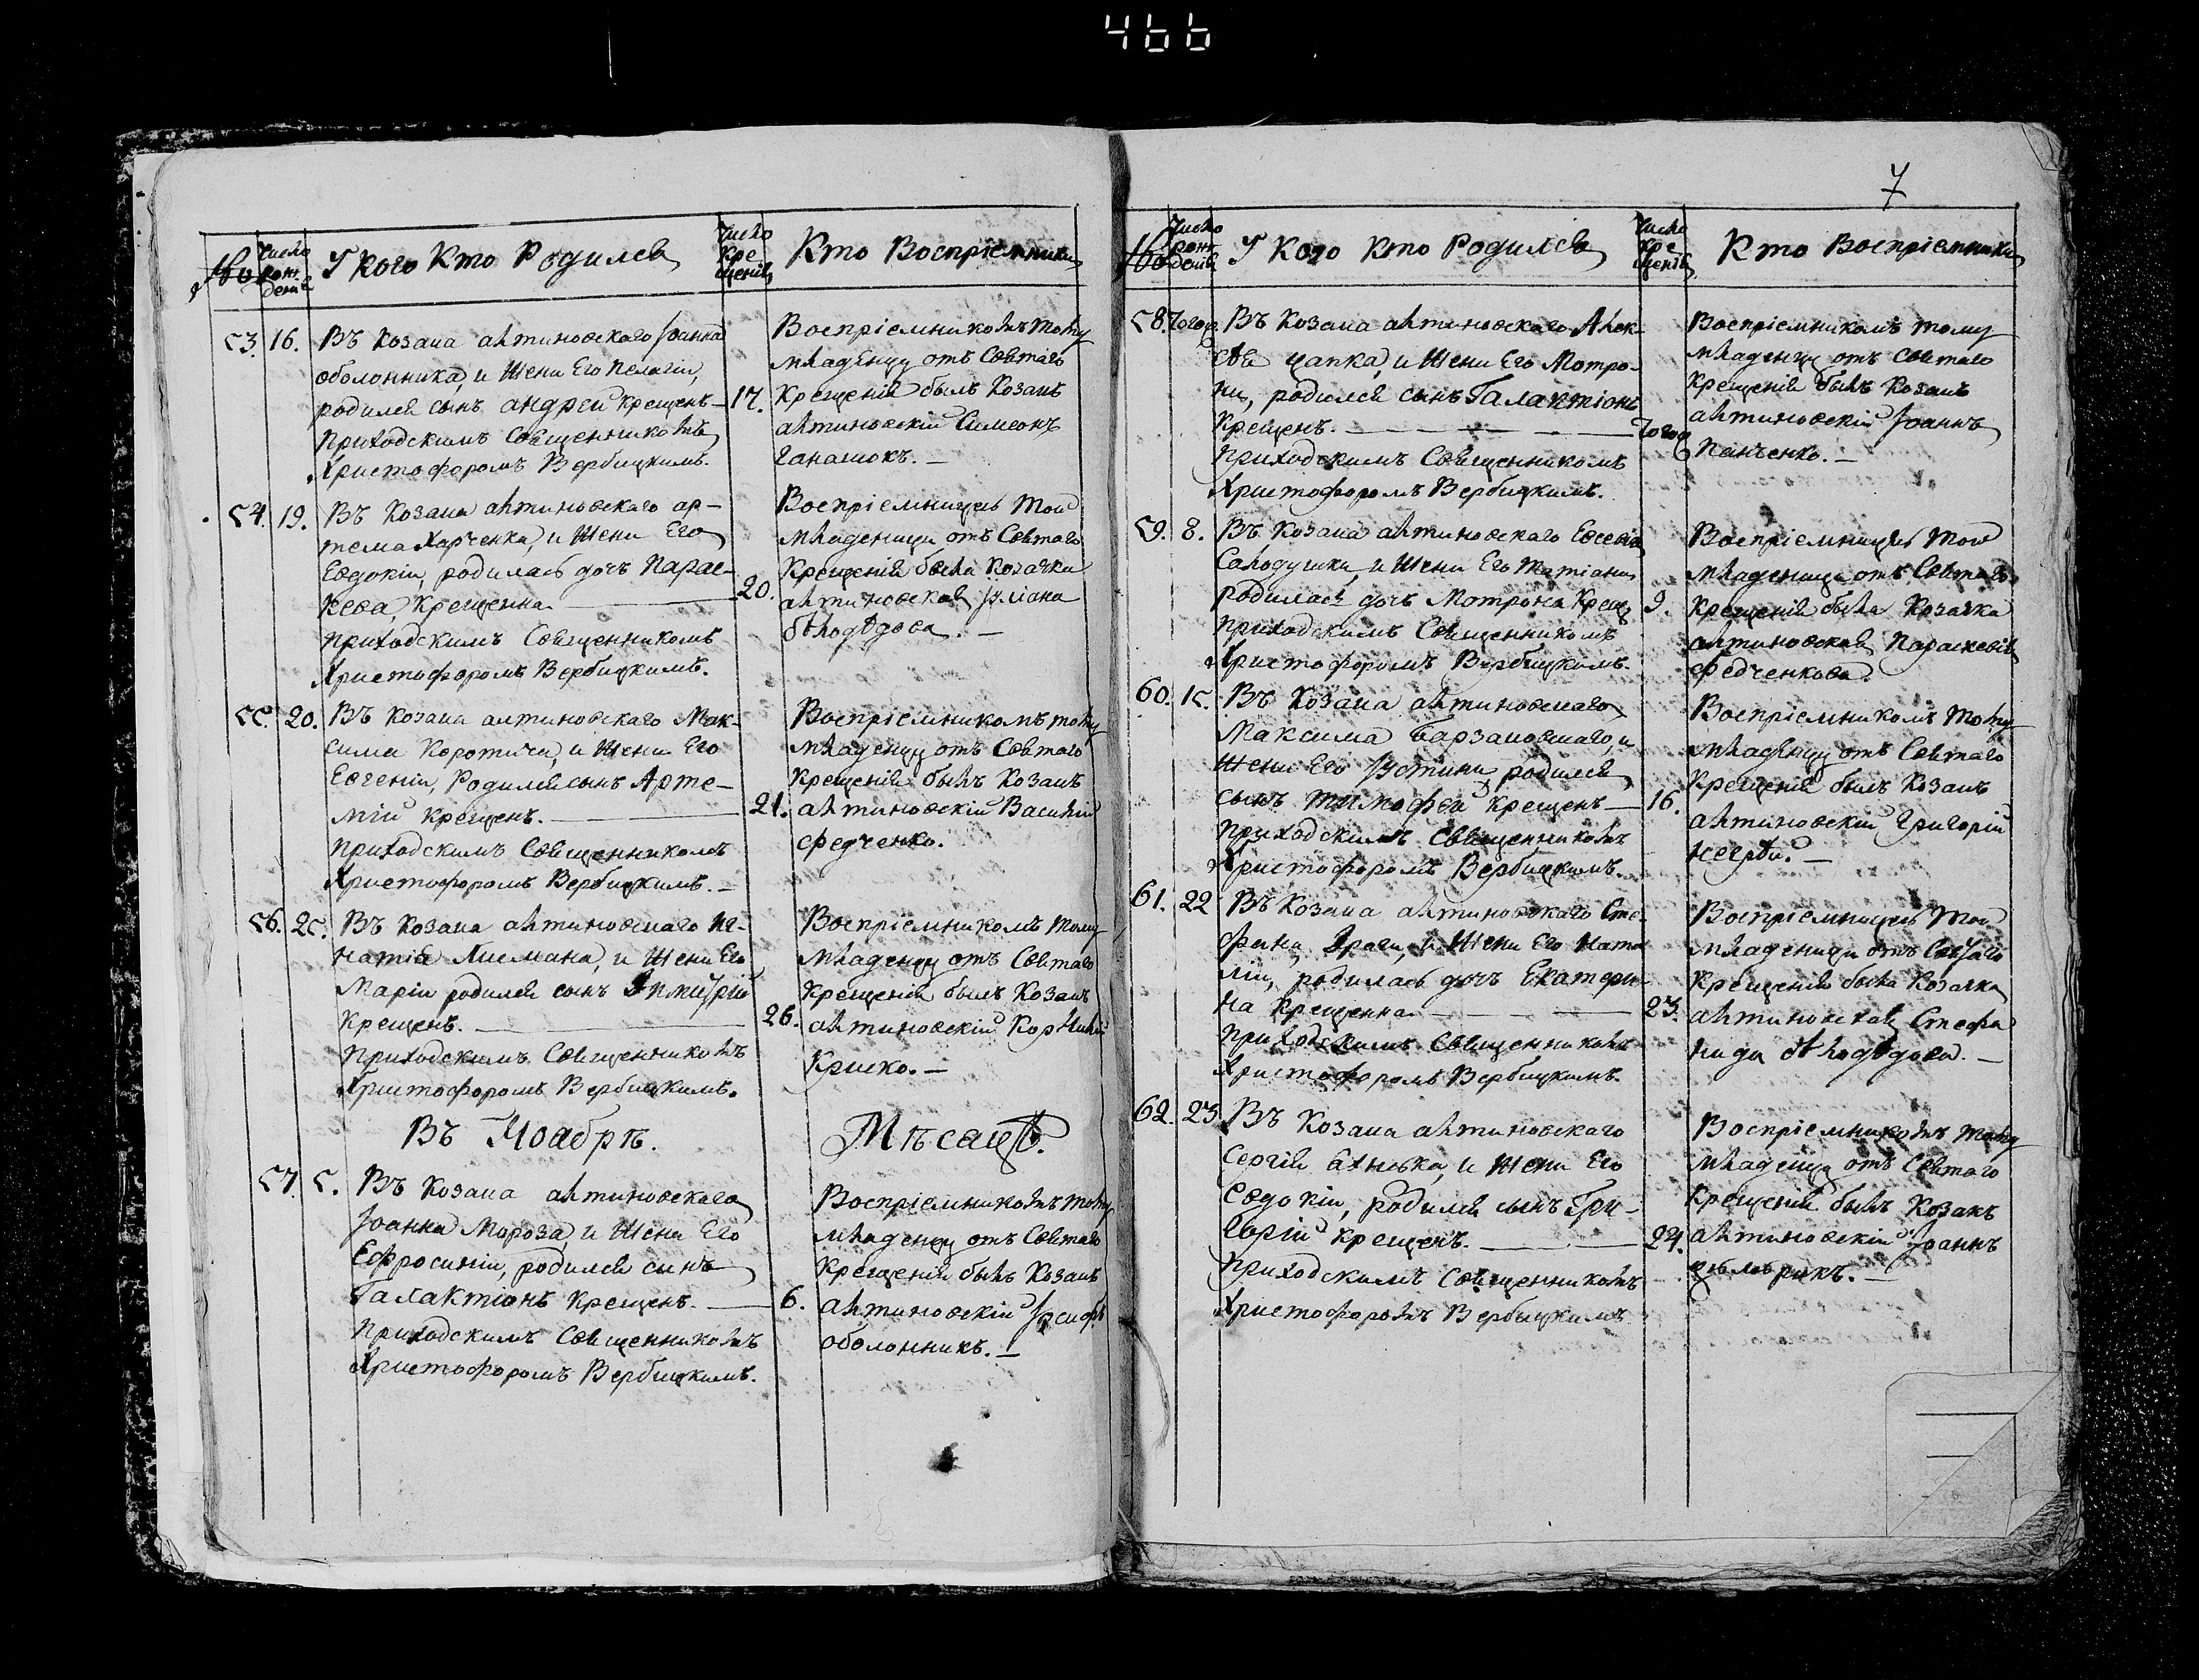 466
7
Число рождения
У кого кто Родился
Число Крещения
Кто Восприемники
53. 16. Въ Козака алтиновского Іоанна
оболонника, и Жени Его Пелагіи,
родился сынъ андрей крещенъ —
приходскимъ Священникомъ
Христофоромъ Вербицкимъ.
17.
Восприемникомъ тому
младенцу отъ Святаго
Крещенія былъ Козакъ
алтиновскій Симеонъ
54. 19. Въ Козака алтиновского ар-
тема Харченка, и Жени Его
Евдокіи, родилась дочъ Парас-
кева, Крещенна. —
приходскимъ Священникомъ
Христофоромъ Вербицкимъ.
20.
Восприемницею Той
младеницы отъ Святаго
Крещенія была Козачка
алтиновская Іуліана
бѣлодѣдова. —
55. 20. Въ Козака алтиновского Мак-
сима Коротича, и Жени Его
Евгеніи, Родился сынъ Арте-
мій крещенъ. —
приходскимъ Священникомъ
Христофоромъ Вербицкимъ. —
21.
Восприемникомъ тому
младенцу отъ Святаго
Крещенія былъ Козакъ
алтиновскій Василій
Федченко.
56. 25. Въ Козака алтиновского Иг-
натія Лисмана, и Жени Его
Маріи родился сынъ Димитрій
Крещенъ. —
приходскимъ Священникомъ
Христофоромъ Вербицкимъ.
26.
Восприемникомъ Тому
младенцу отъ Святаго
крещенія былъ Козакъ
алтиновскій Корнилій
Криско. —
Въ Ноабрѣ. Мѣсацѣ.
57. 5. Въ Козака алтиновского
Іоанна Мороза, и Жени Его
Ефросиніи, родился сынъ
Галактіонъ крещенъ. —
приходскимъ Священникомъ
Христофоромъ Вербицкимъ.
6.
Восприемникомъ тому
младенцу отъ Святаго
Крещенія былъ Козакъ
алтиновскій Іосифъ
оболонникъ. —
Число рождения
У кого кто Родился
Число Крещения
Кто Восприемники
58. Того Въ Козака алтиновского Алек-
сѣя цапка, и Жени Его Мотро-
ни, родился сынъ Галактіонъ
Крещенъ. —
приходскимъ Священникомъ
Христофоромъ Вербицкимъ.
Того
Восприемникомъ тому
младенцу отъ святаго
Крещенія былъ Козакъ
алтиновскій Іоаннъ
Панченко. —
59. 8. Въ Козака алтиновского Евсевія
Салодушки, и Жени Его Татіани
родиласъ дочъ Мотрона Крещ
приходскимъ Священникомъ
Христофоромъ Вербицкимъ.
9.
Восприемницею Той
младеницы отъ Святаго
крещенія была Козачка
алтиновская Параскевія
Федченкова.
60. 15. Въ Козака алтиновского
Максима Барзаковского, и
Жени Его Іустини, родился
сынъ Тимофей крещенъ —
приходскимъ Священникомъ
Христофоромъ Вербицкимъ.
16.
Восприемникомъ Тому
младенцу отъ Святаго
Крещенія былъ Козакъ
алтиновскій Григорій
61. 22 Въ Козака алтиновского Сте-
фана, Драги, и Жени Его Ната
ліи, родилась дочъ Екатери-
на крещенна. —
приходскимъ Священникомъ
Христофоромъ Вербицкимъ.
23.
Восприемницею Той
младеницы отъ Святаго
Крещенія была Козачка
алтиновская Стефа
нида бѣлодѣдова. —
62. 23 Въ Козака алтиновского
Сергія и Жени Его
Евдокіи, родился сынъ Гри-
горій крещенъ. —
приходскимъ Священникомъ
Христофоромъ Вербицкимъ
24.
Восприемникомъ тому
младенцу отъ Святаго
крещенія былъ Козакъ
алтиновскій Іоаннъ